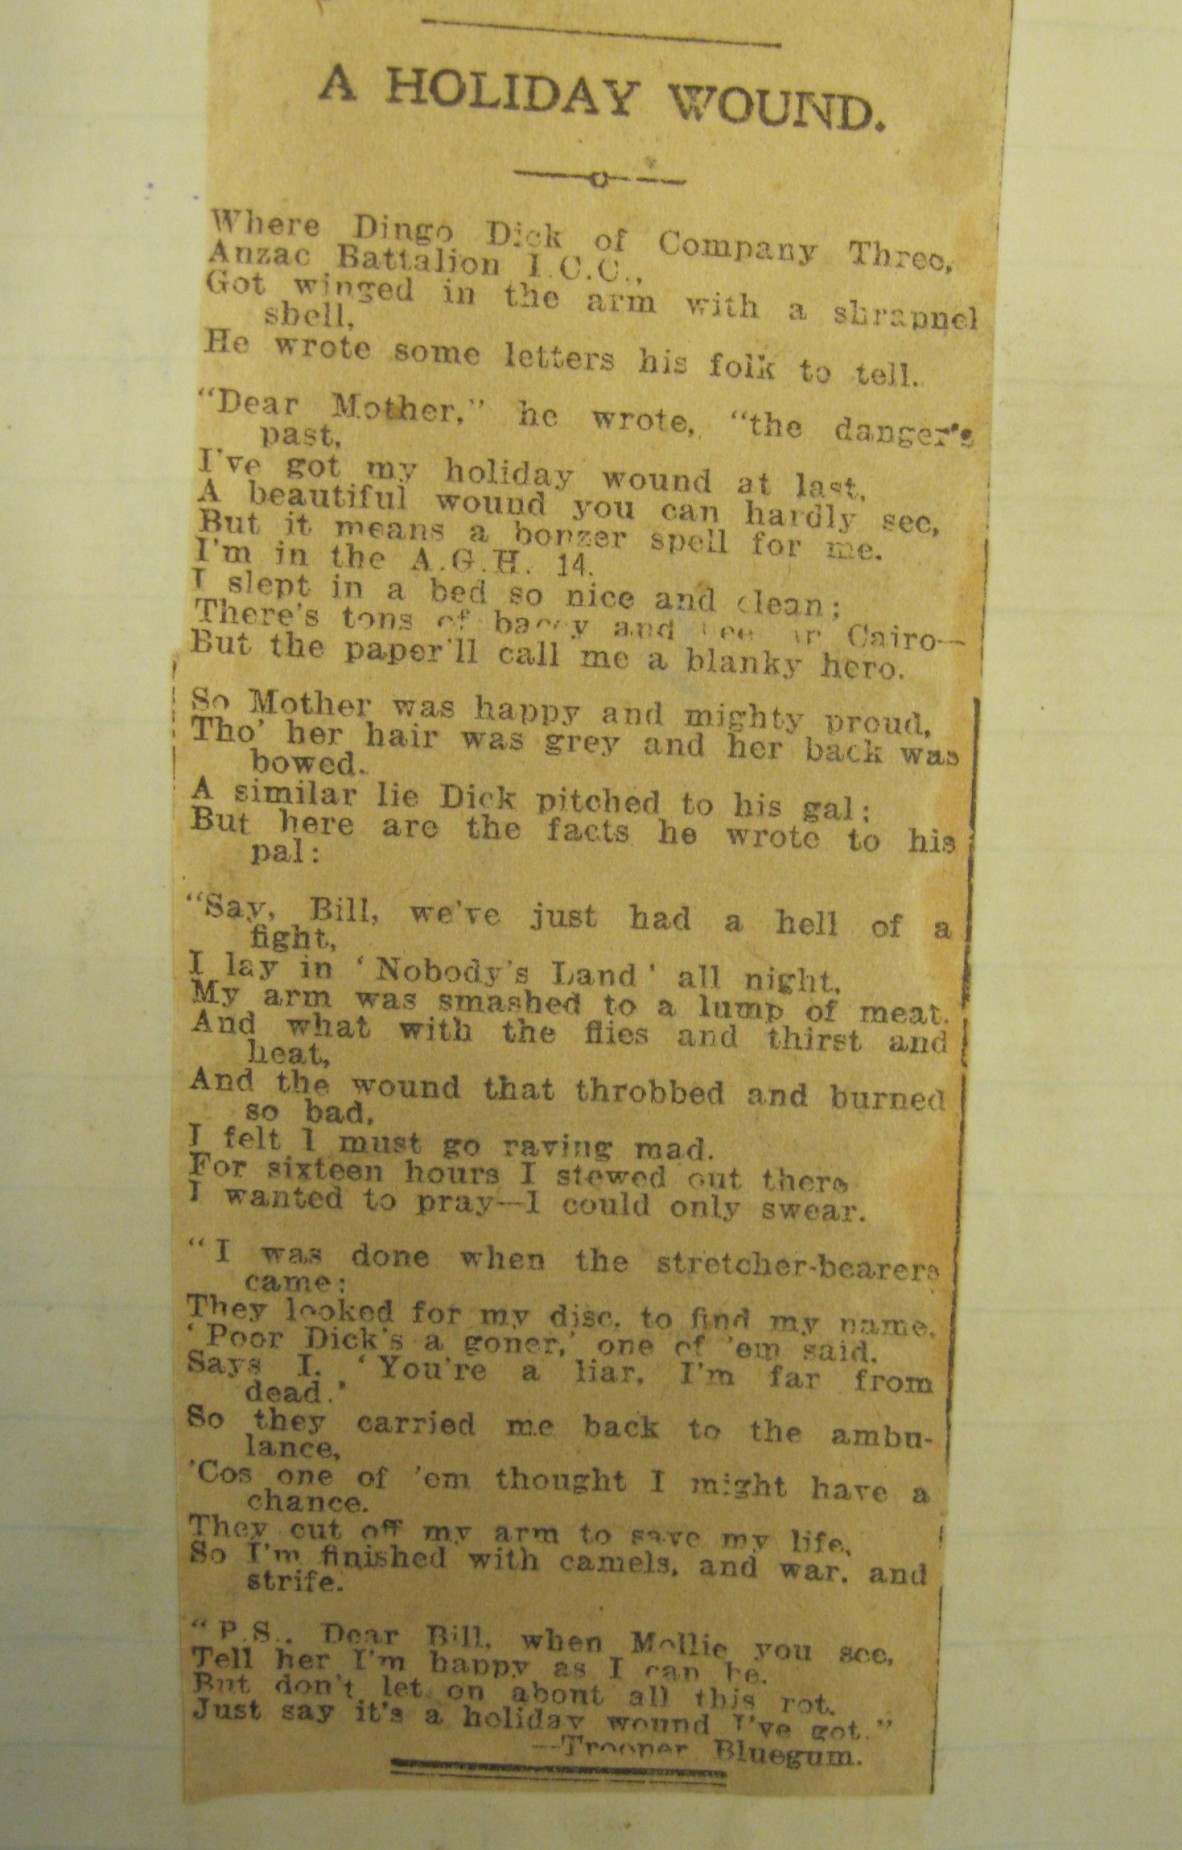 A HOLIDAY WOUND.
Where Dingo Dick of Company Three,
Anzac Battalion I.C.C.,
Got winged in the arm with a shrapnel
shell,
He wrote some letters his folk to tell.
"Dear Mother," he wrote, "the danger's
past,
I've got my holiday wound at last,
A beautiful wound you can hardly see,
But it means a bonzer spell for me.
I'm in the A.G.H. 14.
I slept in a bed so nice and clean;
There's tons of baccy and Cairo—
But the paper'll call me a blanky hero.
So Mother was happy and mighty proud,
Tho' her hair was grey and her back was
bowed.
A similar lie Dick pitched to his gal;
But here are the facts he wrote to his
pal:
"Say, Bill, we've just had a hell of a
fight,
I lay in 'Nobody's Land' all night,
My arm was smashed to a lump of meat.
And what with the flies and thirst and
heat,
And the wound that throbbed and burned
so bad,
I felt I must go raving mad.
For sixteen hours I stewed out there
I wanted to pray—I could only swear.
"I was done when the stretcher-bearers
came;
They looked for my disc, to find my name.
'Poor Dick's a goner,' one of 'em said.
Says I, 'You're a liar, I'm far from
dead.'
So they carried me back to the ambu-
lance,
'Cos one of 'em thought I might have a
chance.
They cut off my arm to save my life,
So I'm finished with camels, and war, and
strife.
"P.S., Dear Bill, when Mollie you see,
Tell her I'm happy as I can be.
But don't let on about all this rot,
Just say it's a holiday wound I've got."
—Trooper Bluegum.